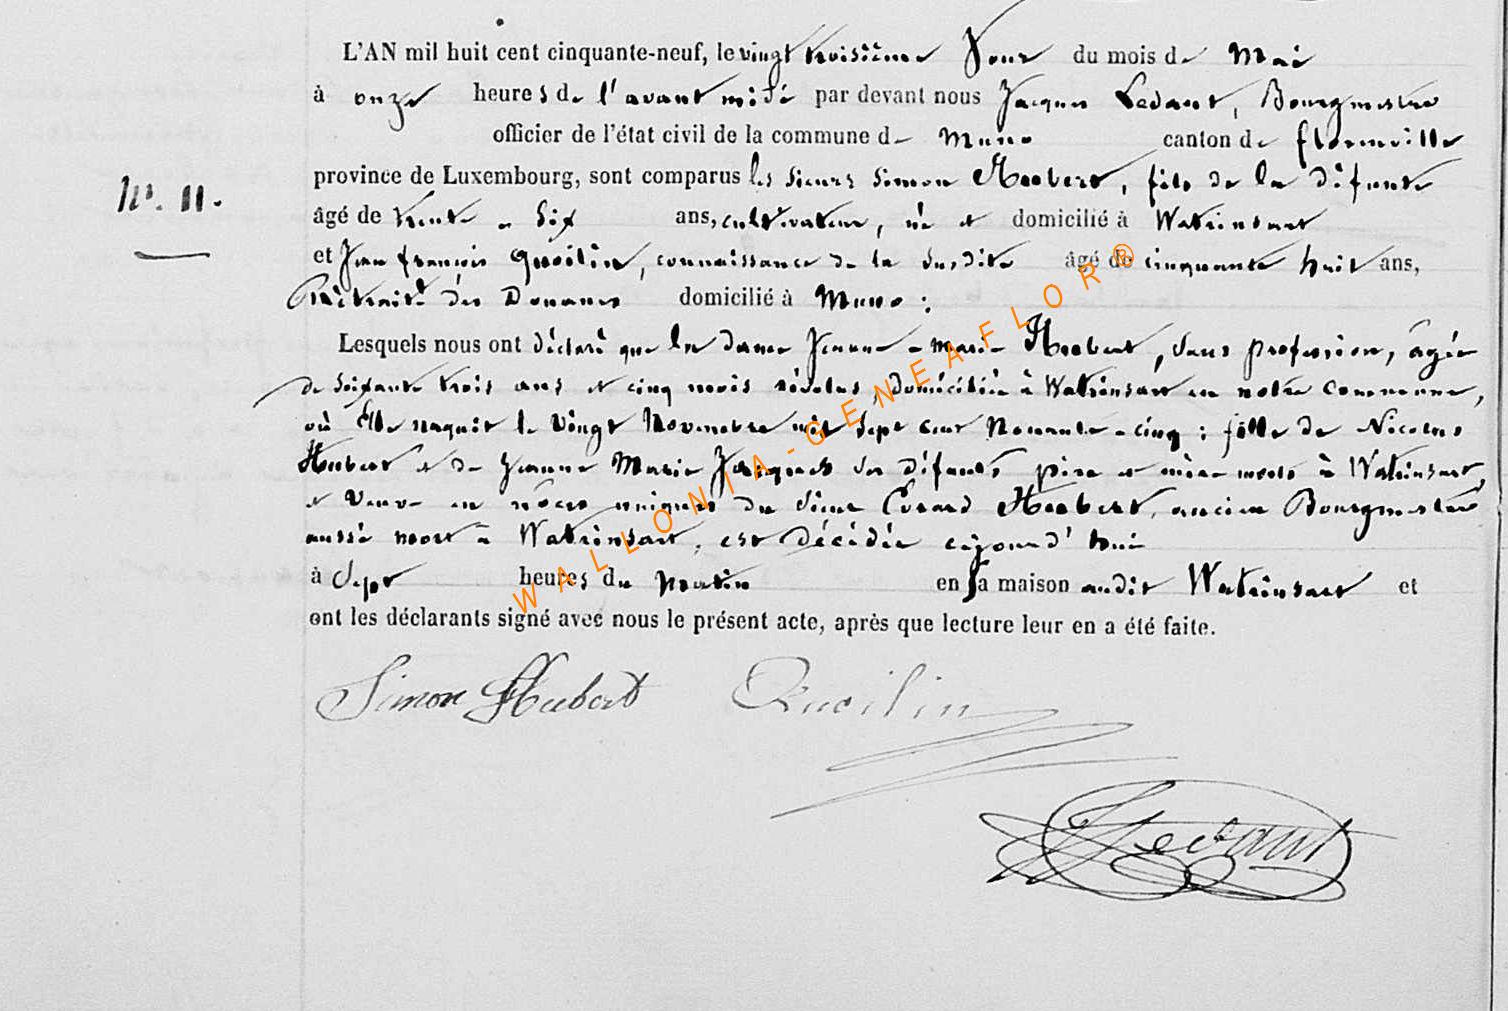 L'AN mil huit cent cinquante-neuf, le vingt troisième Jour du mois de Mai
à onze heures de l'avant midi par devant nous Jacques Ledant, Bourgmestre
officier de l'état civil de la commune de Muno canton de florenville
N°. 11. province de Luxembourg, sont comparus les sieurs Simon Hubert, fils de la défunte
âgé de trente - Six ans, cultivateur, né et domicilié à Watrinsart
et Jean françois Quoilin, connaissance de la susdite âgé de cinquante huit ans,
Rétraité des Douanes domicilié à Muno :
Lesquels nous ont déclaré que la dame Jeanne - Marie Hubert, Sans profession, âgée
de Soixante trois ans et cinq mois révolus, domiciliée à Watrinsart en notre Commune,
où Elle naquit le Vingt Novembre mil Sept cent Nonante - cinq : fille de Nicolas
Hubert et de Jeanne Marie Jacques Ses défunts père et mère morts à Watrinsart
et Veuve en nôces uniques du Sieur Evrard Hubert, ancien Bourgmestre
aussi mort à Watrinsart, est décédée cejourd'hui
à Sept heures du Matin en Sa maison audit Watrinsart et
ont les déclarants signé avec nous le présent acte, après que lecture leur en a été faite.
Simon Hubert Quoilin
JLedant
WALLONIA-GENEAFLOR®